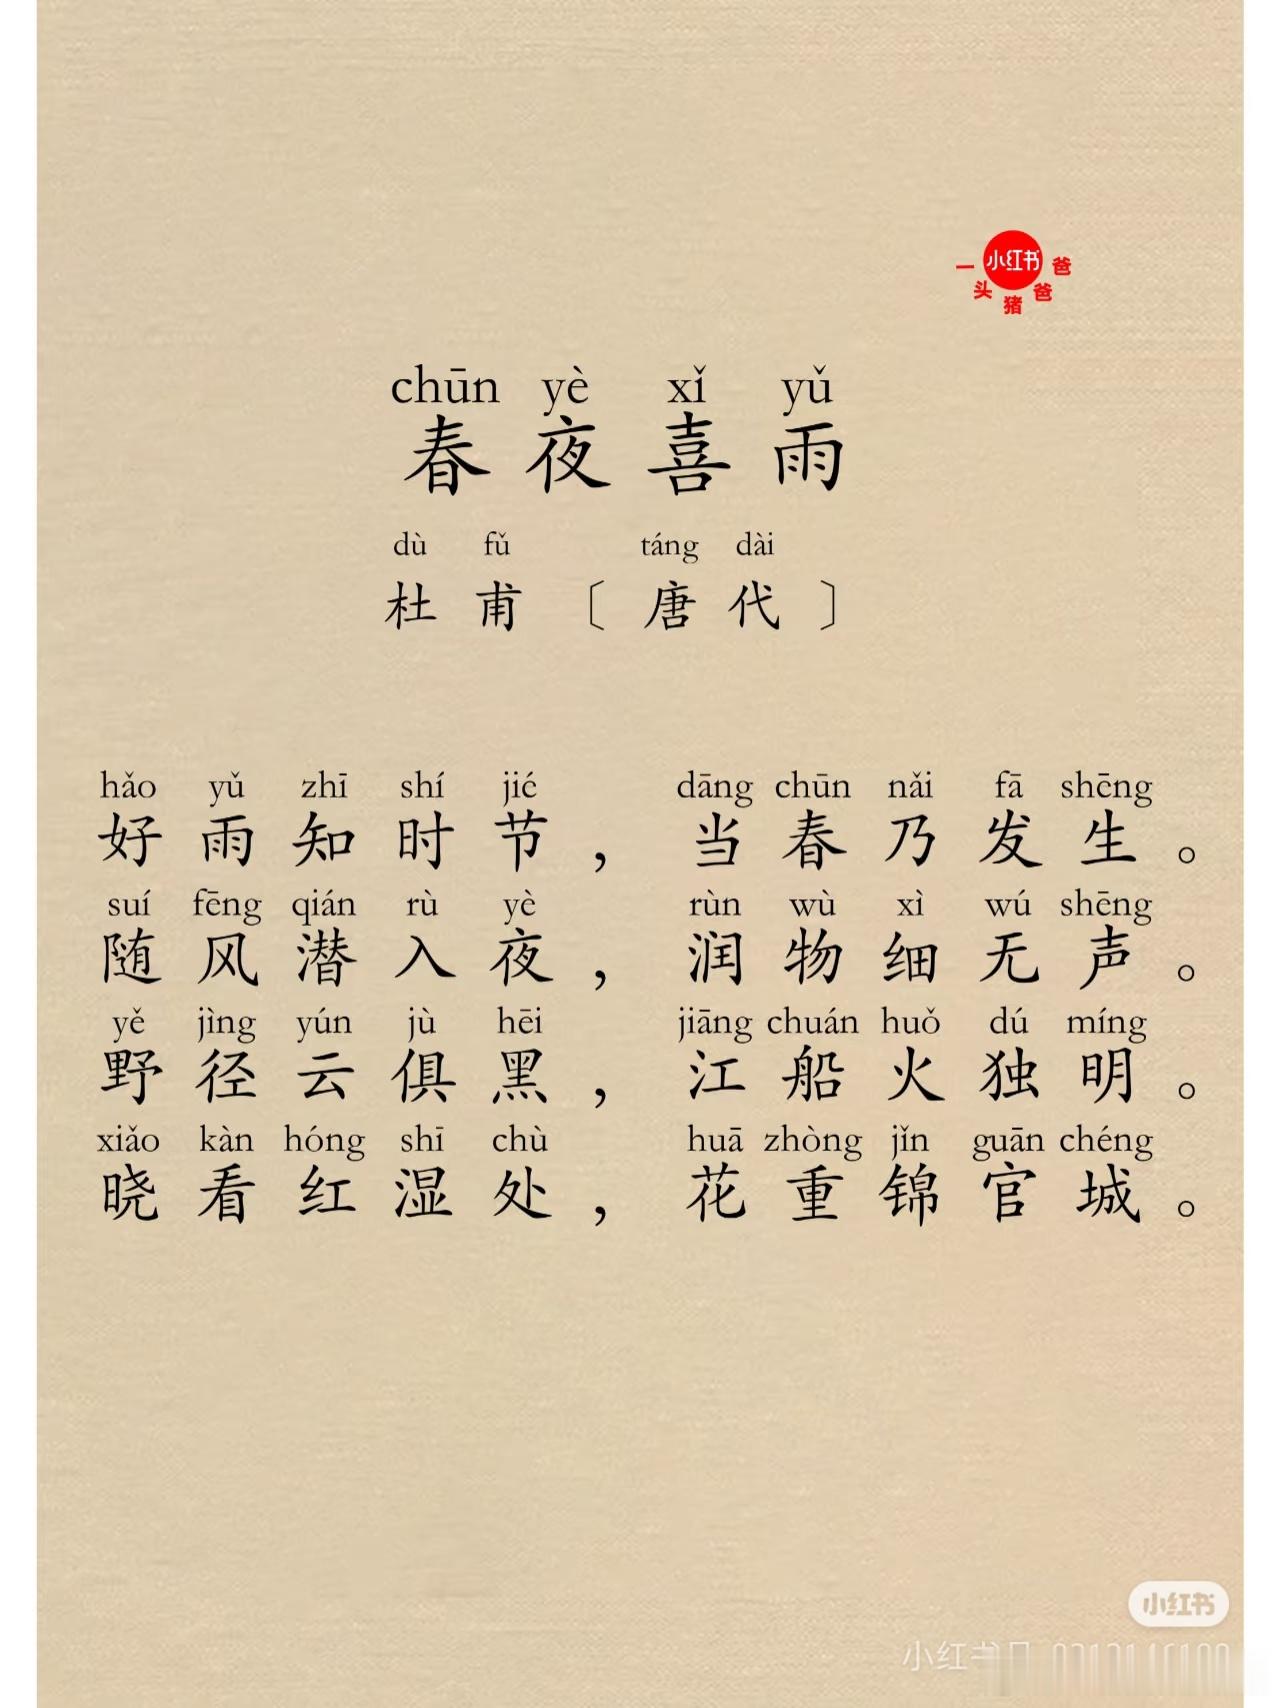 小红书
一头猪爸爸
chūn yè xǐ yǔ
春夜喜雨
dù fǔ táng dài
杜甫〔唐代〕
hǎo yǔ zhī shí jié dāng chūn nǎi fā shēng
好雨知时节，当春乃发生。
suí fēng qián rù yè rùn wù xì wú shēng
随风潜入夜，润物细无声。
yě jìng yún jù hēi jiāng chuán huǒ dú míng
野径云俱黑，江船火独明。
xiǎo kàn hóng shī chù huā zhòng jǐn guān chéng
晓看红湿处，花重锦官城。
小红书
小红书